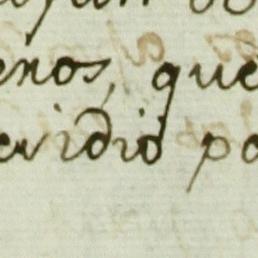 enos, que
eridio po